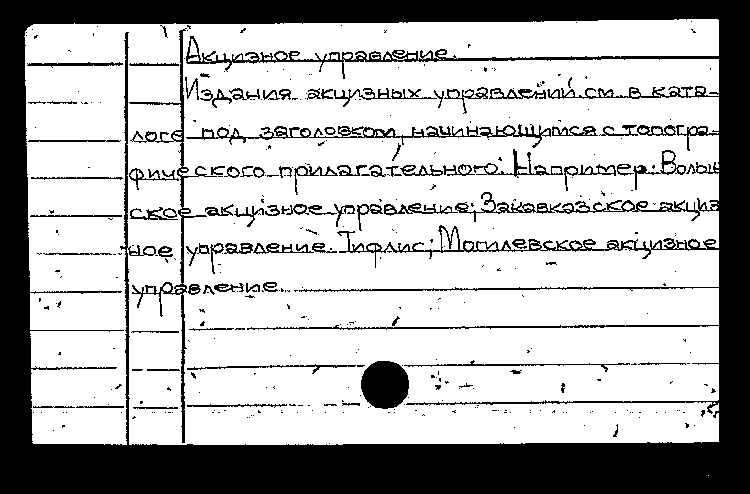 Акцизное управление.
Издания акцизных управлений см. в ката-
логе под заголовком, начинающимся с топогра-
фического прилагательного: Например: Волын
ское акцизное управление; Закавказское акциз
ное управление. Тифлис; Могилевское акцизное
управление.